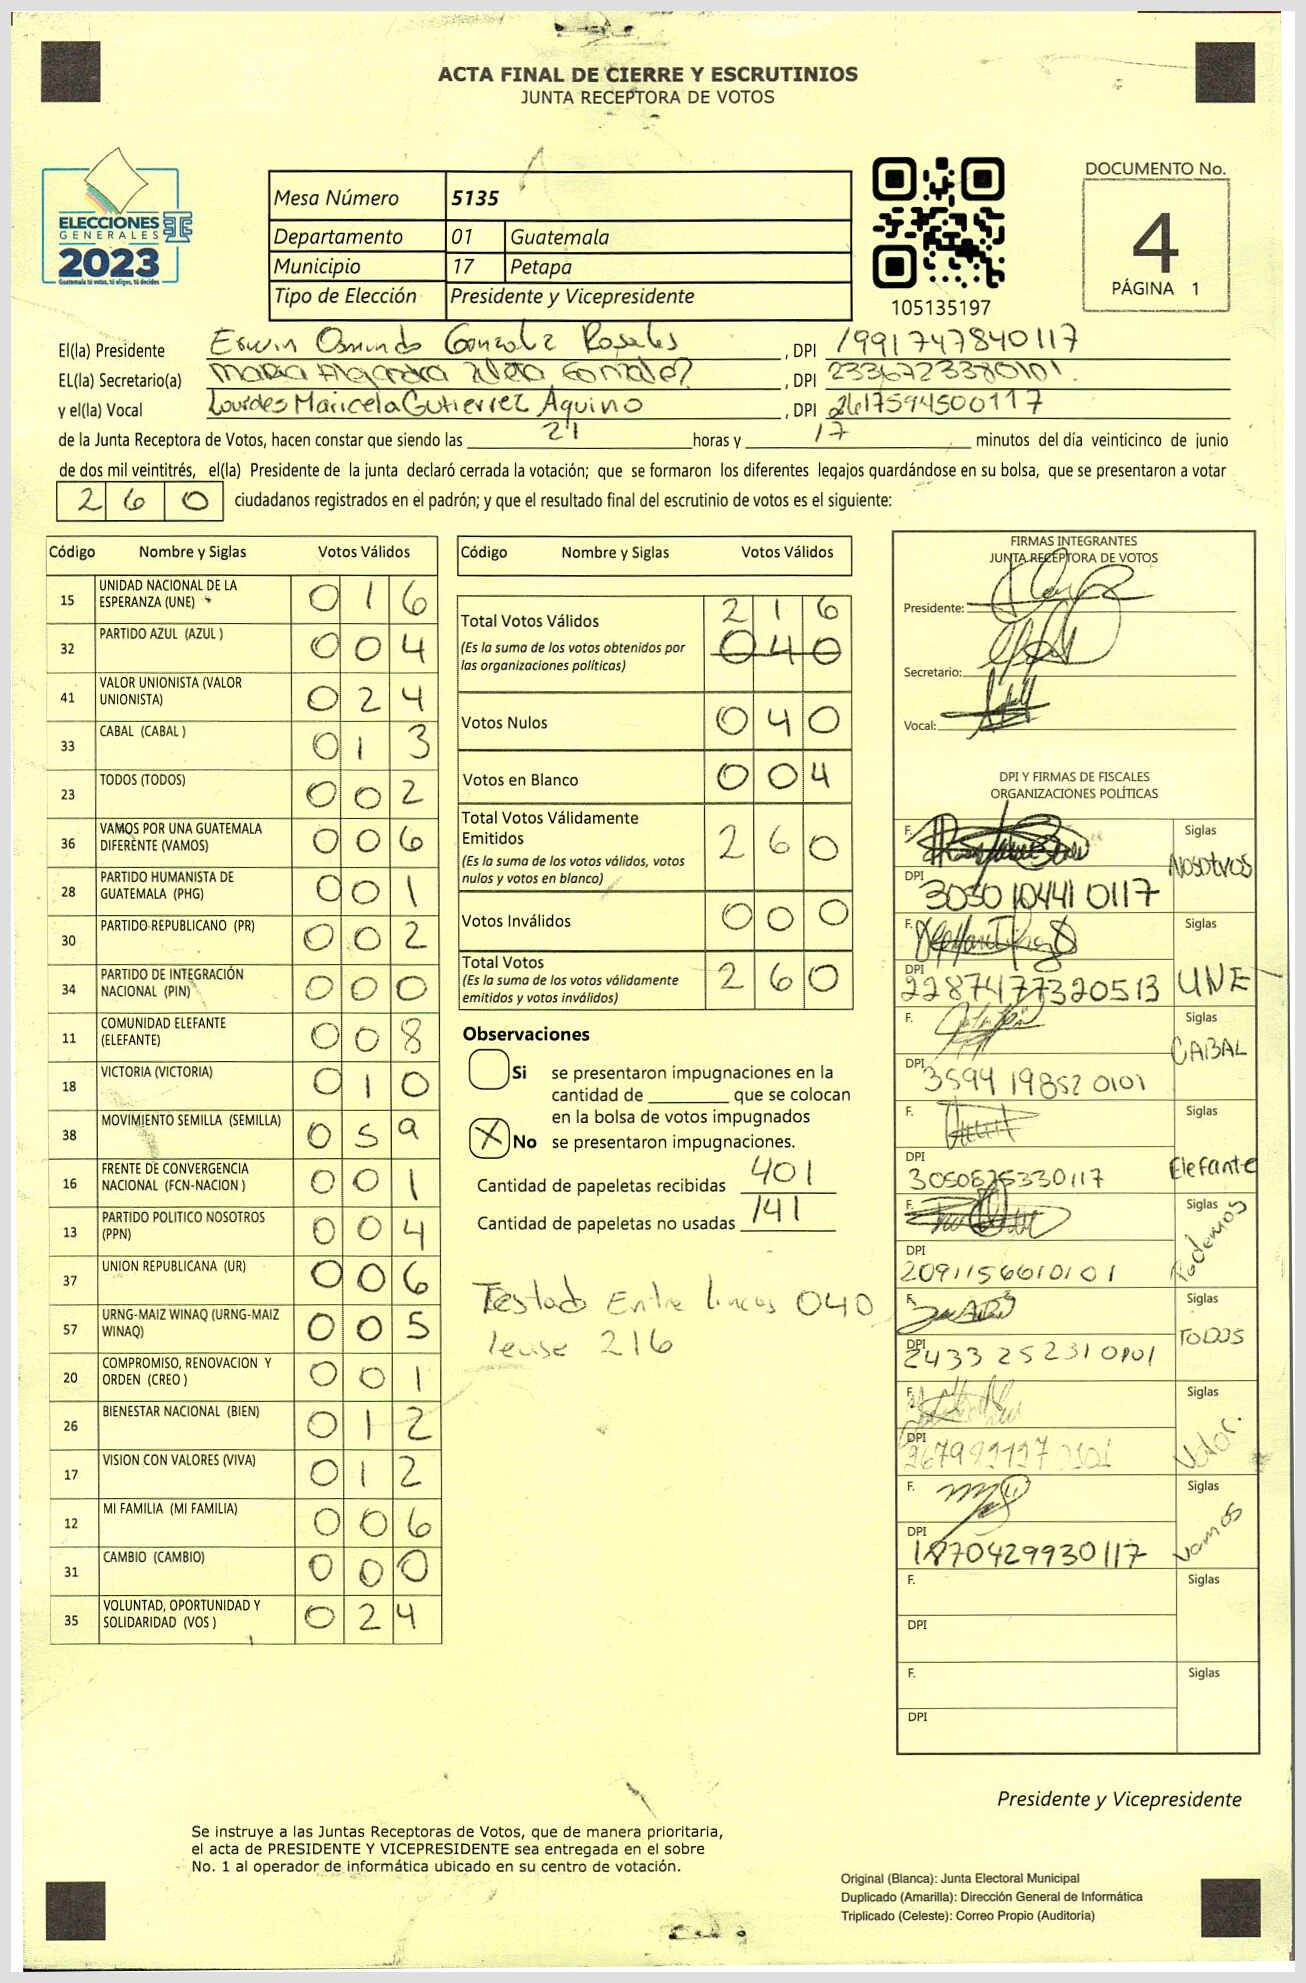 ACTA FINAL DE CIERRE Y ESCRUTINIOS
JUNTA RECEPTORA DE VOTOS
ELECCIONES
GENERALES
2023
Guatemala tú votas, tú eliges, tú decides
Mesa Número 5135
Departamento 01 Guatemala
Municipio 17 Petapa
Tipo de Elección Presidente y Vicepresidente
105135197
DOCUMENTO No.
4
PÁGINA 1
El(la) Presidente Erwin Osmundo Gonzalez Rosales , DPI 1991747840117
EL(la) Secretario(a) Maria Alejandra Gonzalez , DPI 2336723380101
y el(la) Vocal Lourdes Maricela Gutierrez Aquino , DPI 2617594500117
de la Junta Receptora de Votos, hacen constar que siendo las 21 horas y 17 minutos del día veinticinco de junio
de dos mil veintitrés, el(la) Presidente de la junta declaró cerrada la votación; que se formaron los diferentes legajos guardándose en su bolsa, que se presentaron a votar
260 ciudadanos registrados en el padrón; y que el resultado final del escrutinio de votos es el siguiente:
Código Nombre y Siglas Votos Válidos
15 UNIDAD NACIONAL DE LA ESPERANZA (UNE) 016
32 PARTIDO AZUL (AZUL ) 004
41 VALOR UNIONISTA (VALOR UNIONISTA) 024
33 CABAL (CABAL ) 013
23 TODOS (TODOS) 002
36 VAMOS POR UNA GUATEMALA DIFERENTE (VAMOS) 006
28 PARTIDO HUMANISTA DE GUATEMALA (PHG) 001
30 PARTIDO REPUBLICANO (PR) 002
34 PARTIDO DE INTEGRACIÓN NACIONAL (PIN) 000
11 COMUNIDAD ELEFANTE (ELEFANTE) 008
18 VICTORIA (VICTORIA) 010
38 MOVIMIENTO SEMILLA (SEMILLA) 059
16 FRENTE DE CONVERGENCIA NACIONAL (FCN-NACION ) 001
13 PARTIDO POLITICO NOSOTROS (PPN) 004
37 UNION REPUBLICANA (UR) 006
57 URNG-MAIZ WINAQ (URNG-MAIZ WINAQ) 005
20 COMPROMISO, RENOVACION Y ORDEN (CREO ) 001
26 BIENESTAR NACIONAL (BIEN) 012
17 VISION CON VALORES (VIVA) 012
12 MI FAMILIA (MI FAMILIA) 006
31 CAMBIO (CAMBIO) 000
35 VOLUNTAD, OPORTUNIDAD Y SOLIDARIDAD (VOS ) 024
Código Nombre y Siglas Votos Válidos
Total Votos Válidos 216
(Es la suma de los votos obtenidos por las organizaciones políticas) 040
Votos Nulos 040
Votos en Blanco 004
Total Votos Válidamente Emitidos 260
(Es la suma de los votos válidos, votos nulos y votos en blanco)
Votos Inválidos 000
Total Votos 260
(Es la suma de los votos válidamente emitidos y votos inválidos)
Observaciones
Si se presentaron impugnaciones en la
cantidad de ________ que se colocan
en la bolsa de votos impugnados
X No se presentaron impugnaciones.
Cantidad de papeletas recibidas 401
Cantidad de papeletas no usadas 141
Testado Entre lineas 040
lease 216
FIRMAS INTEGRANTES
JUNTA RECEPTORA DE VOTOS
Presidente:
Secretario:
Vocal:
DPI Y FIRMAS DE FISCALES
ORGANIZACIONES POLÍTICAS
F. Siglas Nosotros
DPI 3030104410117
F. Siglas UNE
DPI 2287477320513
F. Siglas CABAL
DPI 3594198520101
F. Siglas Elefante
DPI 3050825330117
F. Siglas Podemos
DPI 2091156610101
F. Siglas TODOS
DPI 2433252310101
F. Siglas
DPI
F. Siglas Vamos
DPI 1870429930117
F. Siglas
DPI
F. Siglas
DPI
Presidente y Vicepresidente
Se instruye a las Juntas Receptoras de Votos, que de manera prioritaria,
el acta de PRESIDENTE Y VICEPRESIDENTE sea entregada en el sobre
No. 1 al operador de informática ubicado en su centro de votación.
Original (Blanca): Junta Electoral Municipal
Duplicado (Amarilla): Dirección General de Informática
Triplicado (Celeste): Correo Propio (Auditoría)